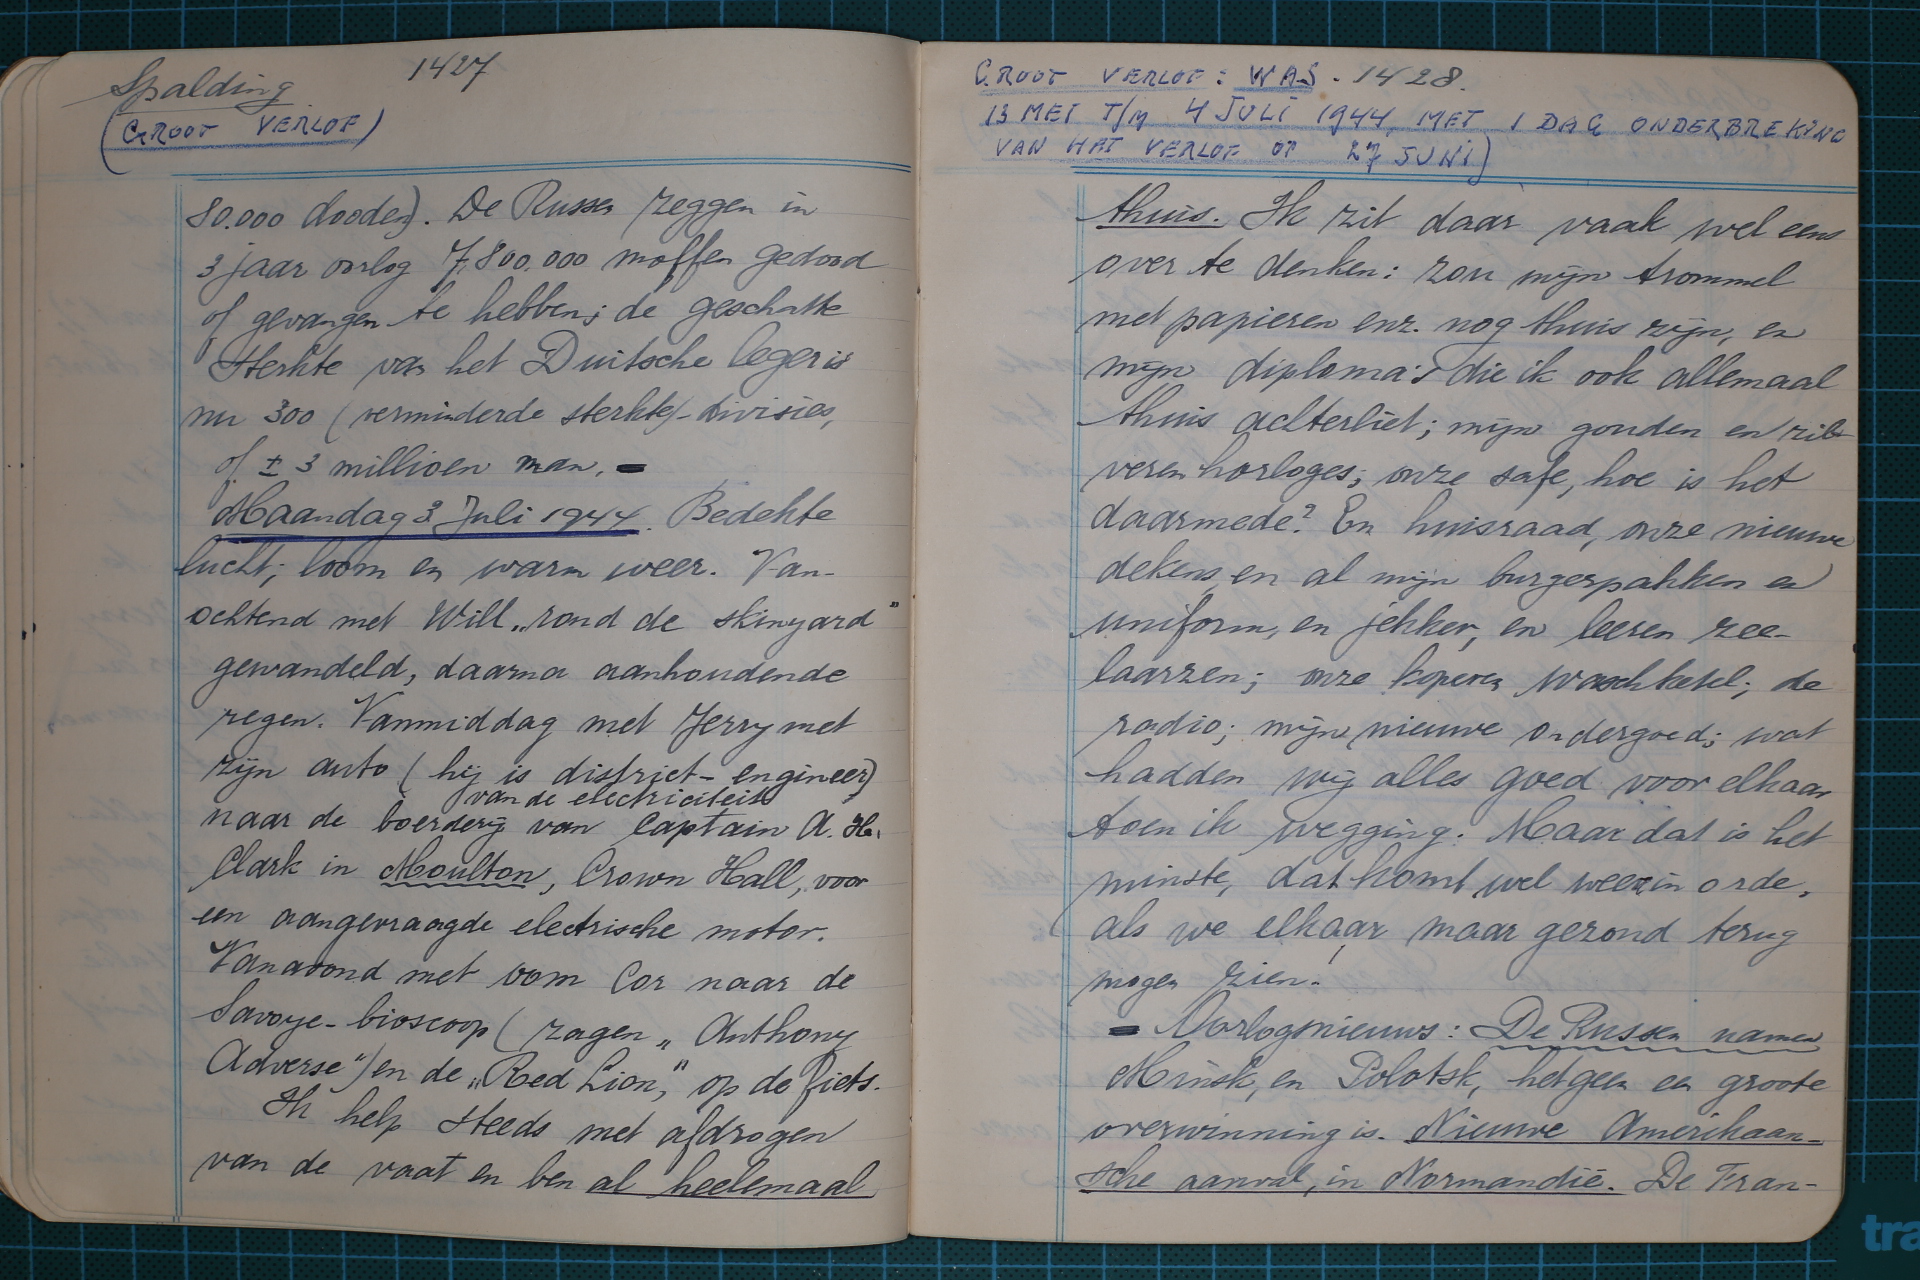 Spalding 1427
(GROOT VERLOF)
80.000 dooden). De Russen zeggen in
3 jaar oorlog 7.800.000 moffen gedood
of gevangen te hebben; de geschatte
sterkte van het Duitsche leger is
nu 300 (verminderde sterkte)-divisies,
of ± 3 millioen man. -
Maandag 3 Juli 1944. Bedekte
lucht; loom en warm weer. Van-
ochtend met Will „rond de skinyard"
gewandeld, daarna aanhoudende
regen. Vanmiddag met Jerry met
zijn auto (hij is district-engineer)
van de electriciteit
naar de boerderij van Captain A. H.
Clark in Moulton, Crown Hall, voor
een aangevraagde electrische motor.
Vanavond met oom Cor naar de
Savoye-bioscoop (zagen „Anthony
Adverse") en de „Red Lion," op de fiets.
Ik help steeds met afdrogen
van de vaat en ben al heelemaal
GROOT VERLOF: WAS. 1428.
13 MEI T/M 4 JULI 1944, MET 1 DAG ONDERBREKING
VAN HET VERLOF OP 27 JUNI)
thuis. Ik zit daar vaak wel eens
over te denken: zou mijn trommel
met papieren enz. nog thuis zijn, en
mijn diploma's die ik ook allemaal
thuis achterliet; mijn gouden en zil-
veren horloges; onze safe, hoe is het
daarmede? En huisraad, onze nieuwe
dekens, en al mijn burgerpakken en
uniform, en jekker, en leeren zee-
laarzen; onze koperen waschketel; de
radio; mijn nieuwe ondergoed; wat
hadden wij alles goed voor elkaar
toen ik wegging. Maar dat is het
minste, dat komt wel weer in orde,
als we elkaar maar gezond terug
mogen zien!
- Oorlogsnieuws: De Russen namen
Minsk, en Polotsk, hetgeen een groote
overwinning is. Nieuwe Amerikaan-
sche aanval, in Normandië. De Fran-
tra